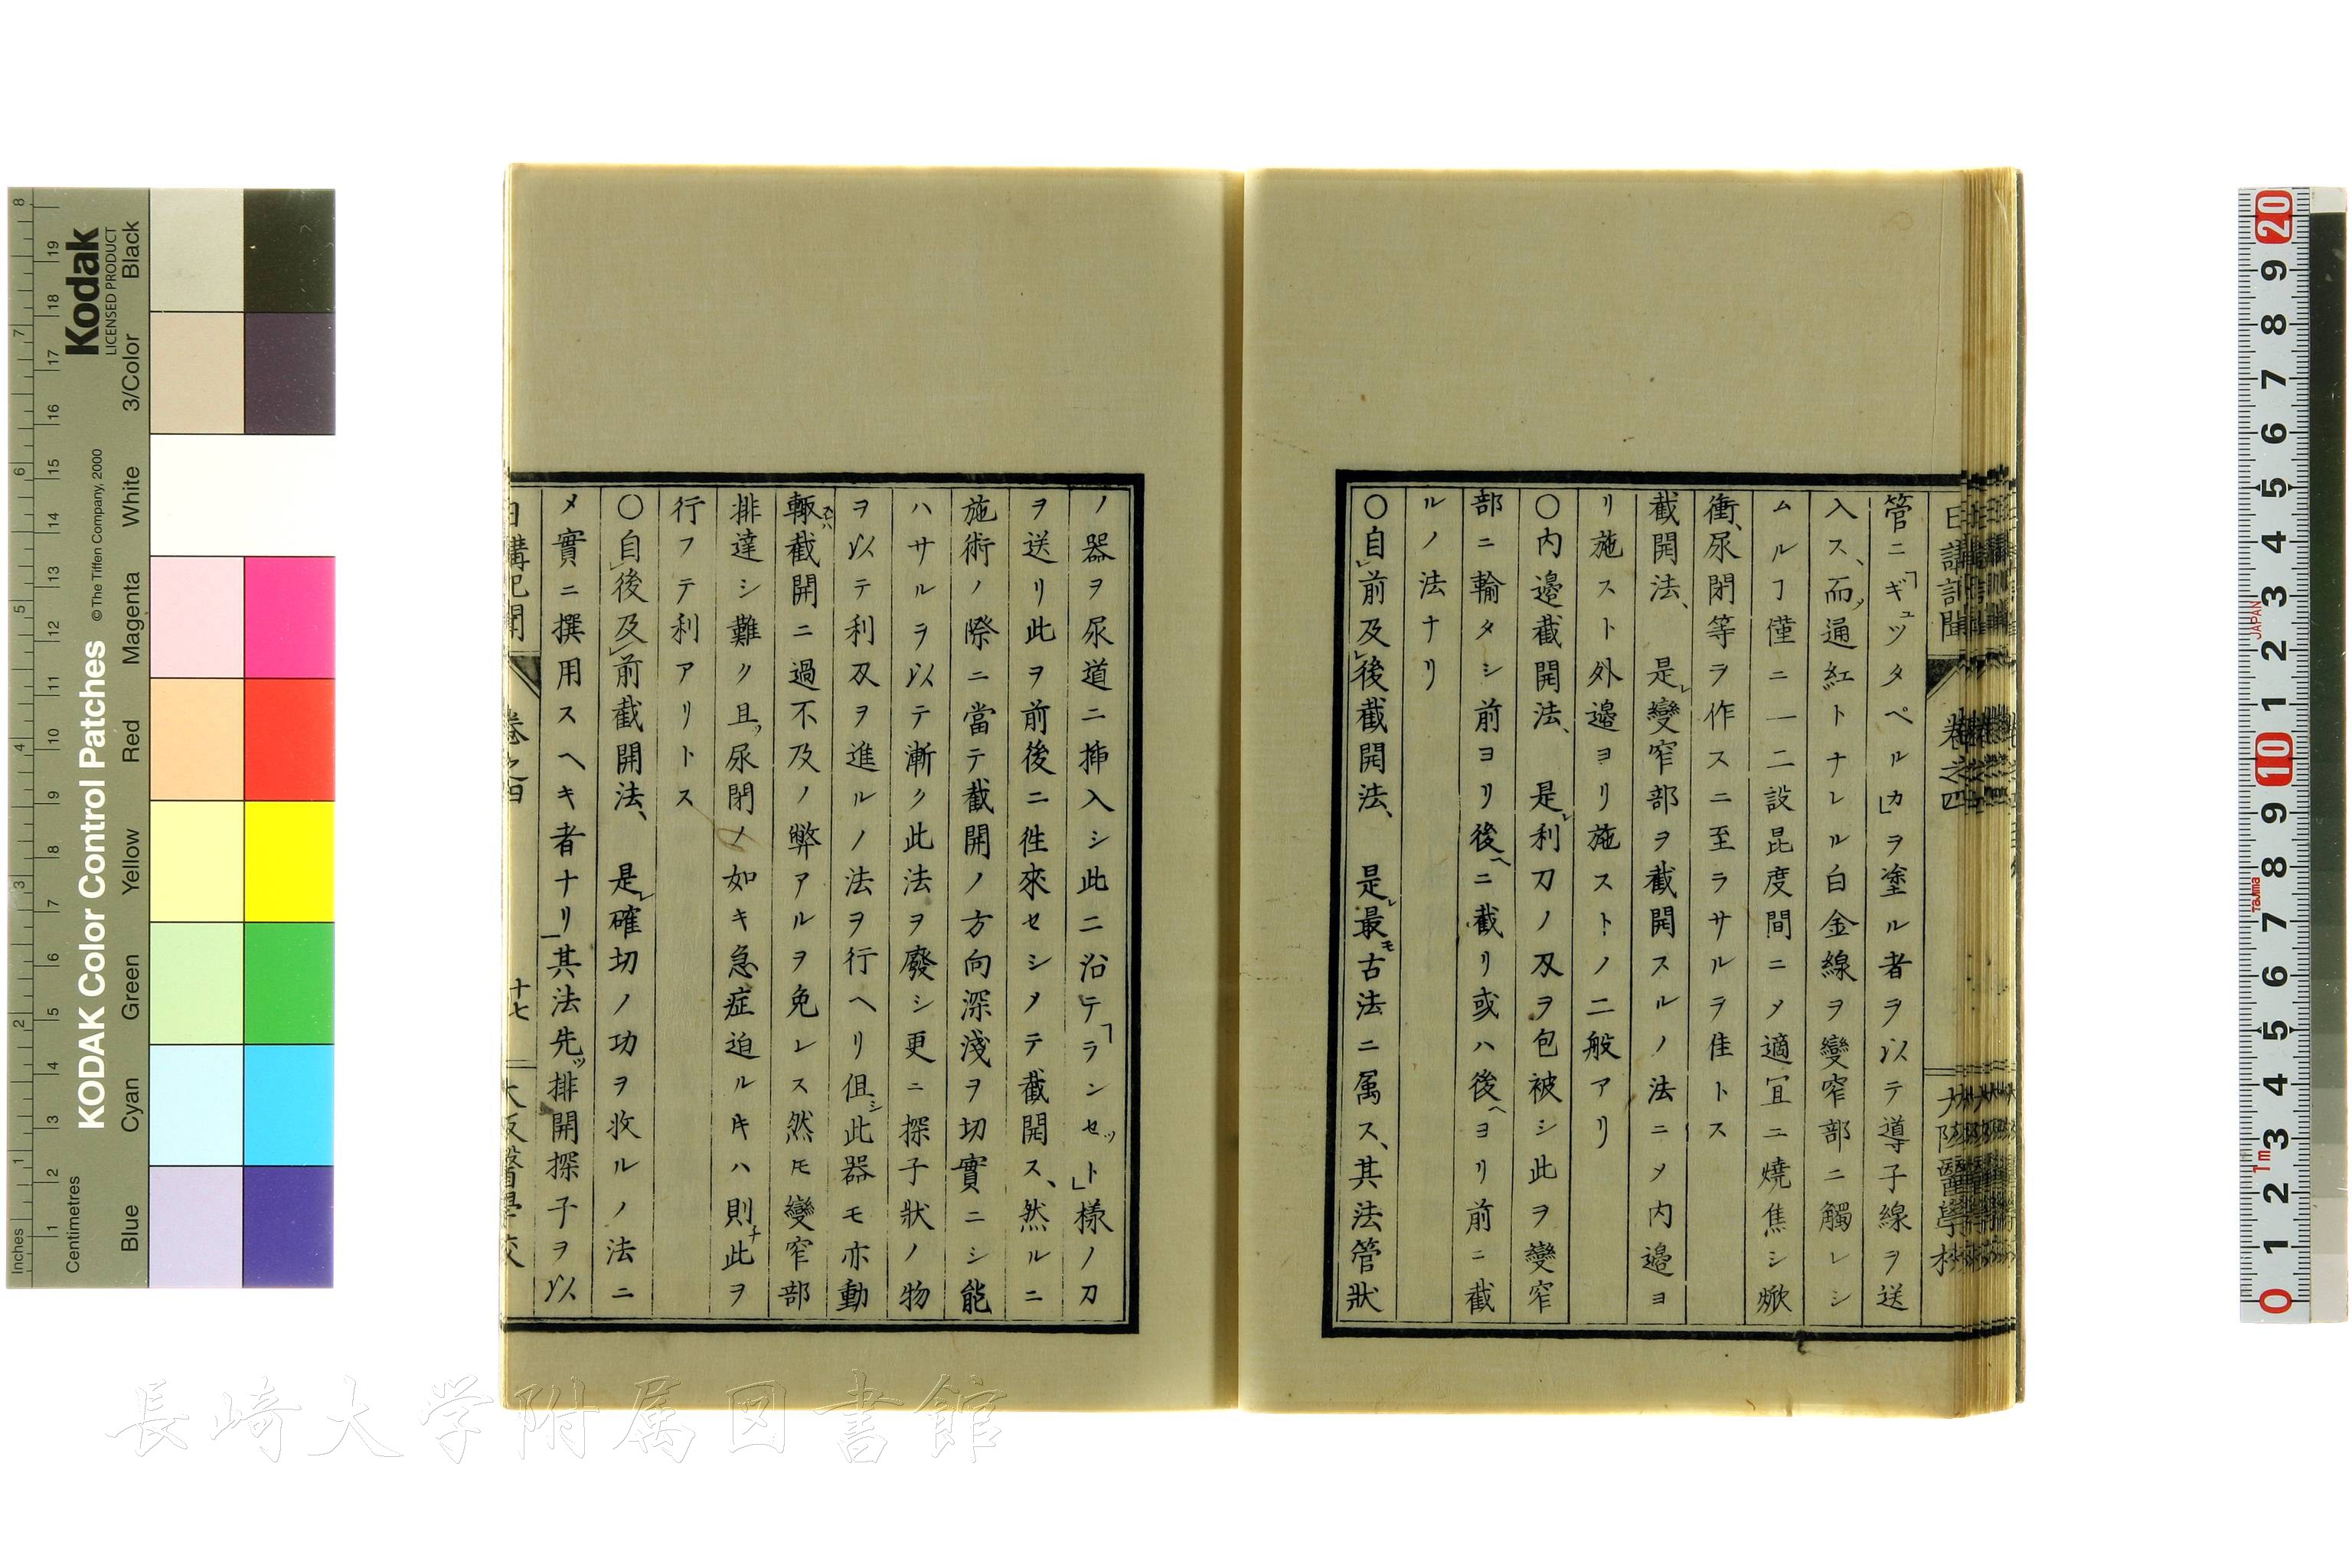 日講記聞
卷之四
大阪醫學校
管ニ「ギュツタペルカ」ヲ塗ル者ヲ以テ導子線ヲ送
入ス、而メ通紅トナレル白金線ヲ變窄部ニ觸レシ
ムルヿ僅ニ一二設昆度間ニメ適冝ニ燒焦シ焮
衝、尿閉等ヲ作スニ至ラサルヲ佳トス
截開法、 是レ變窄部ヲ截開スルノ法ニメ内邉ヨ
リ施スト外邉ヨリ施ストノ二般アリ
〇内邉截開法、 是レ利刀ノ刄ヲ包被シ此ヲ變窄
部ニ輸タシ前ヨリ後ヘニ截リ或ハ後ヘヨリ前ニ截
ルノ法ナリ
〇自レ前及レ後截開法、 是レ最モ古法ニ属ス、其法管狀
ノ器ヲ尿道ニ挿入シ此ニ沿テ「ランセット」樣ノ刀
ヲ送リ此ヲ前後ニ徃來セシメテ截開ス、然ルニ
施術ノ際ニ當テ截開ノ方向深淺ヲ切實ニシ能
ハサルヲ以テ漸ク此法ヲ廢シ更ニ探子狀ノ物
ヲ以テ利刄ヲ進ルノ法ヲ行ヘリ但シ此器モ亦動
輙スレハ截開ニ過不及ノ弊アルヲ免レス然𪜈變窄部
排達シ難ク且ツ尿閉ノ如キ急症迫ルキハ則チ此ヲ
行フテ利アリトス
〇自レ後及レ前截開法、 是レ確切ノ功ヲ收ルノ法ニ
メ實ニ撰用スヘキ者ナリ其法先ツ排開探子ヲ以
日講記聞
卷之四
十七
大阪醫學校
Kodak
LICENSED PRODUCT
KODAK Color Control Patches
© The Tiffen Company, 2000
Inches
Centimetres
Blue
Cyan
Green
Yellow
Red
Magenta
White
3/Color
Black
JAPAN
Tajima
1m
長崎大学附属図書館